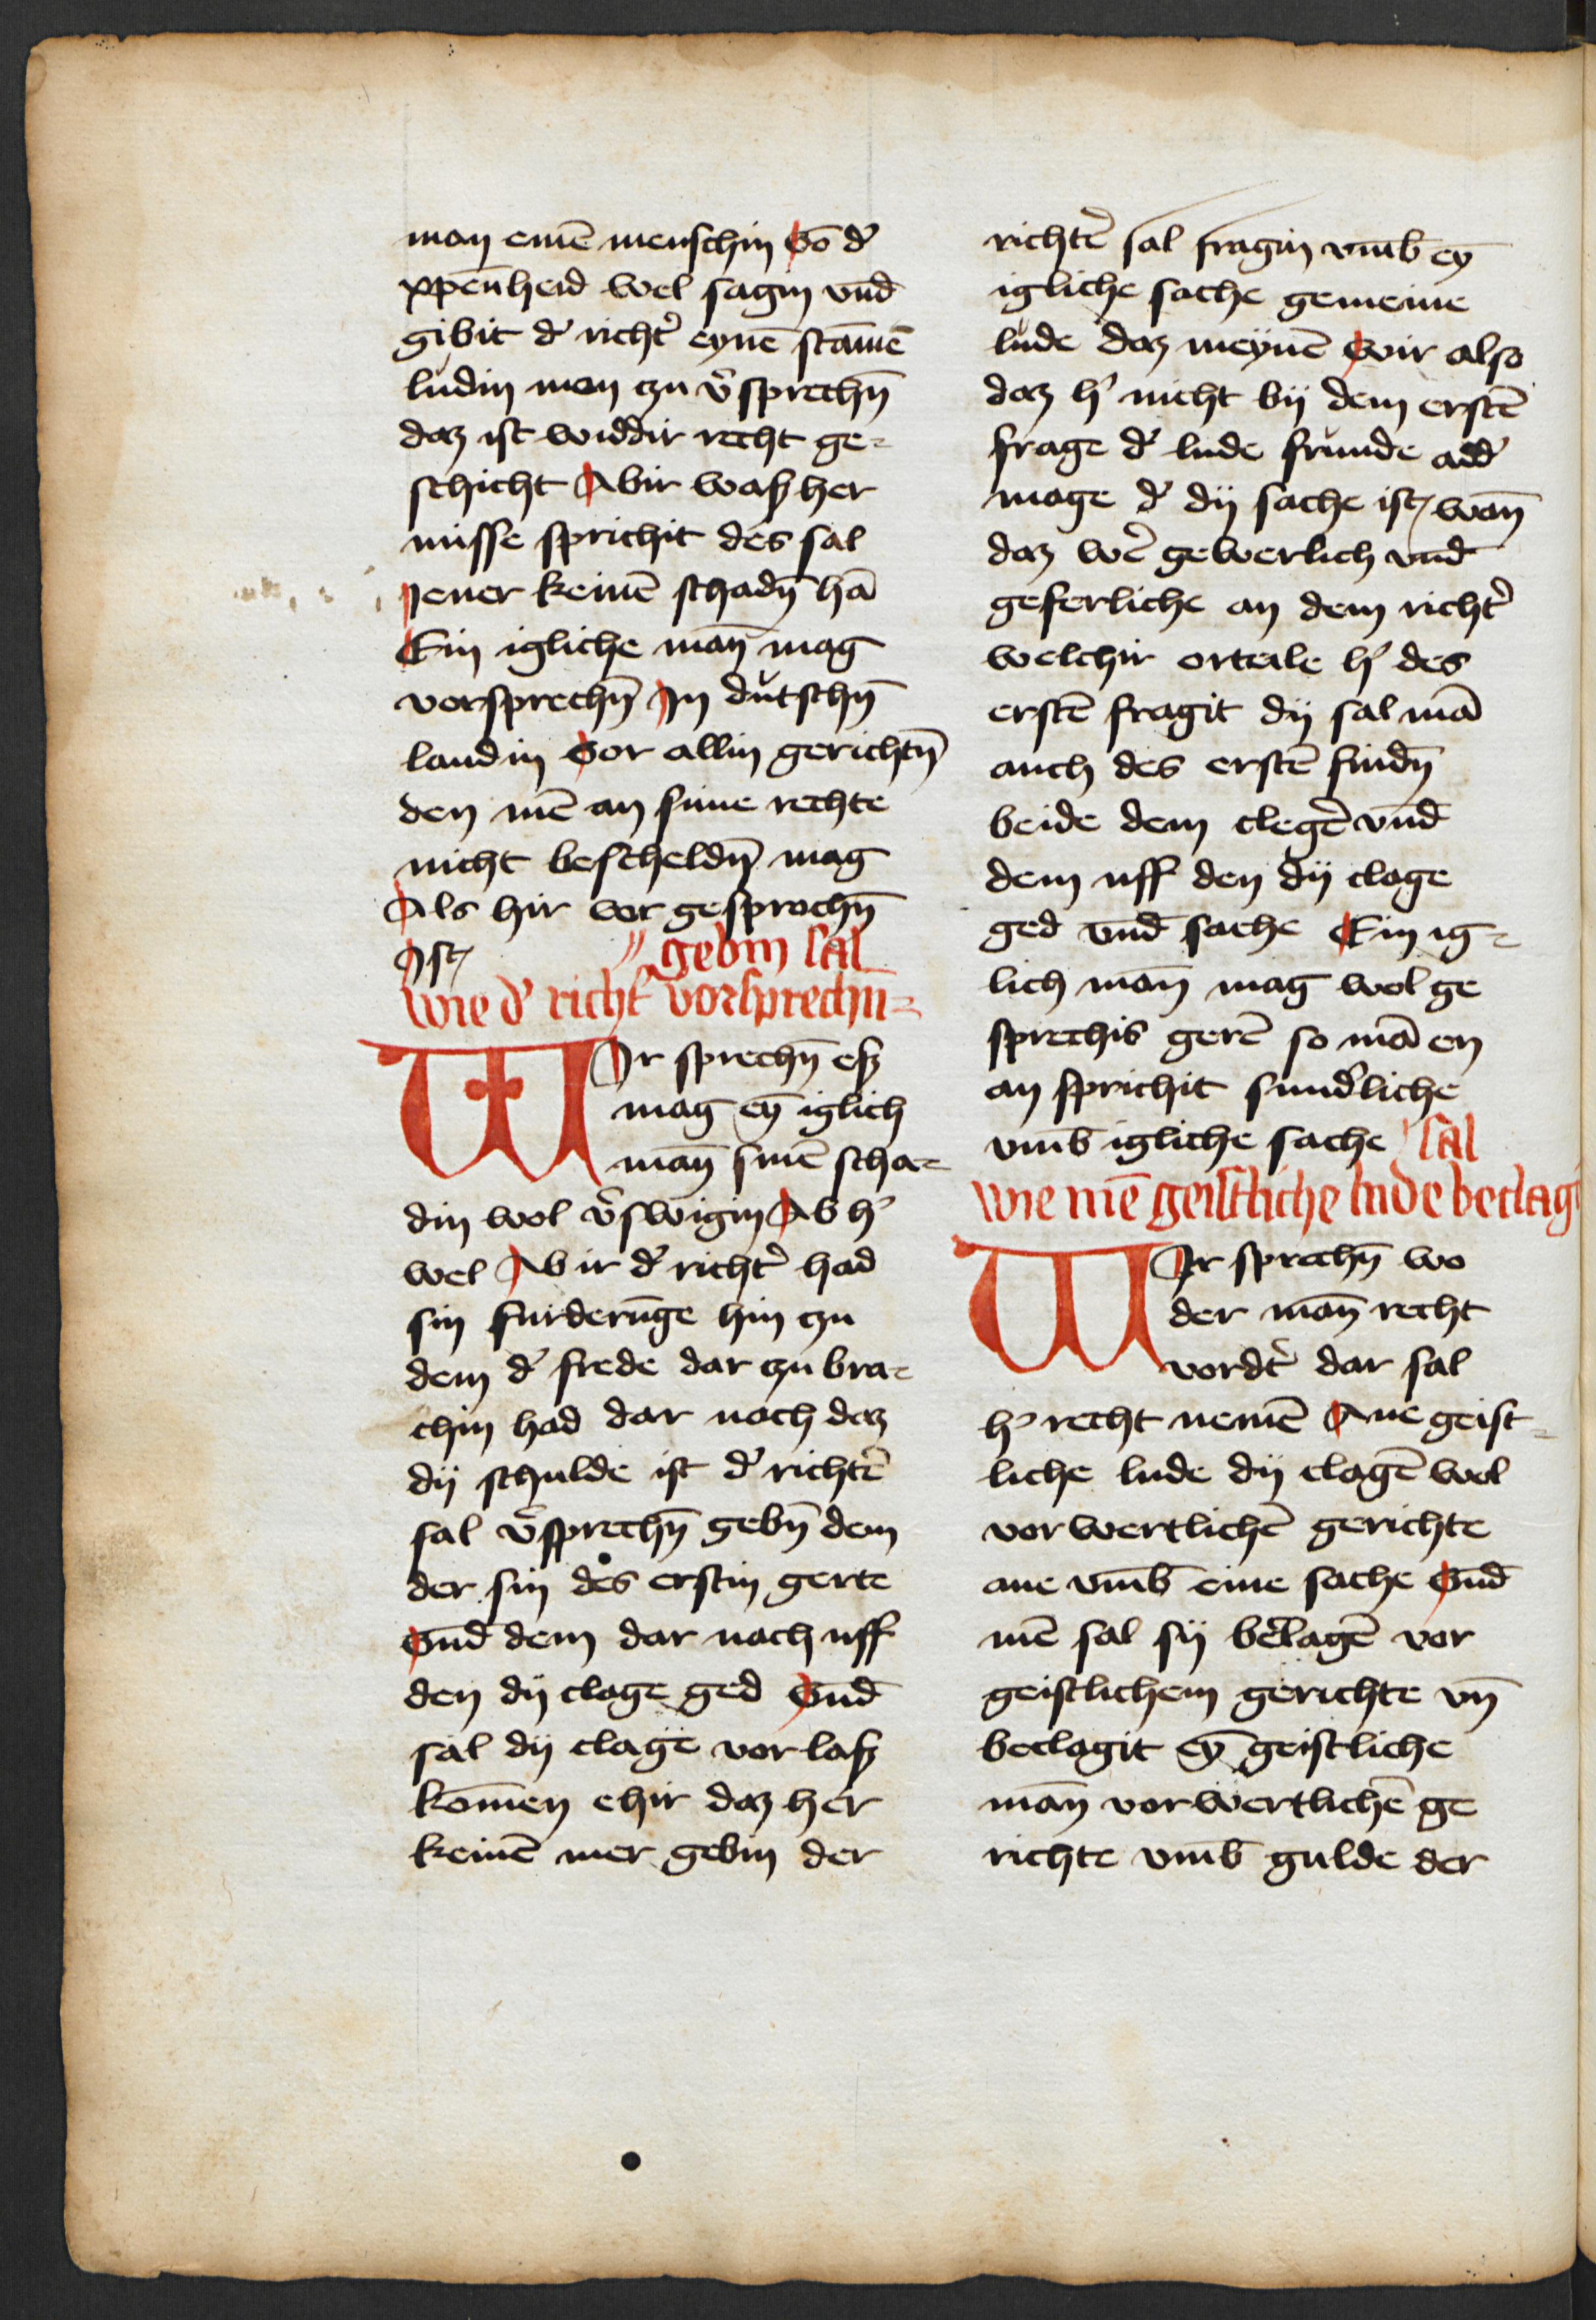 man einē menschin Vō d'
xp̄enheid wel sagin vnd̄
gibit d' richt' eynē stamē
ludin man czu v'sprechn̄
daz ist widdir recht ge=
schicht Abir waß her
misse sprichit des sal
Jener keinē schadn̄ hā
Ein igliche man̄ mag
vorsprechn̄ In dutschn̄
landin Vor allin gerichtn̄
den mē an sime rechte
nicht bescheldn̄ mag
Als hir vor gesprochn̄
Ist
gebin sal
Wie d' richt' vorsprechn=
WIr sprechn̄ eß
mag eȳ iglich
man̄ sinē scha=
din wol v'swigin Ab h'
wel Abir d' richt' had
sin furderūge hin czu
dem d' frede dar czu bra=
chin had dar nach daz
dij schulde ist d' richtē
sal v'sprechn̄ gebn̄ dem
der sin des erstin gerte
Vnd̄ dem dar nach uff
den dij clage ged Vnd̄
sal dij clage vor laß
komen ehir daz her
keinē mer gebin der
richtē sal fragin vm̄b eȳ
igliche sache gemeine
lude daz meynē wir also
daz h' nicht bij dem erstē
frage d' lude frunde add'
mage d' dij sache ist wan̄
daz we' gewerlich vnd̄
geferliche an dem richt'
welchir orteile h' des
erstē fragit dij sal mā
auch des erstē findn̄
beide dem clegē vnd̄
dem uff den dij clage
ged vnd̄ sache Ein ig=
lich man̄ mag wol ge
sprechis gerē so mā en
an sprichit sund'liche
vm̄b igliche sache
sal
Wie mē geistliche lude beclag
WIr sprechn̄ wo
der man̄ recht
vordt' dar sal
h' recht nemē Ane geist=
liche lude dij clagē wol
vor wertlichē gerichte
ane vm̄b eine sache Vnd̄
mē sal sij beclagē vor
geistlichem gerichte vn̄
beclagit eȳ geistliche
man̄ vor wertlichē ge
richte vm̄b gulde der